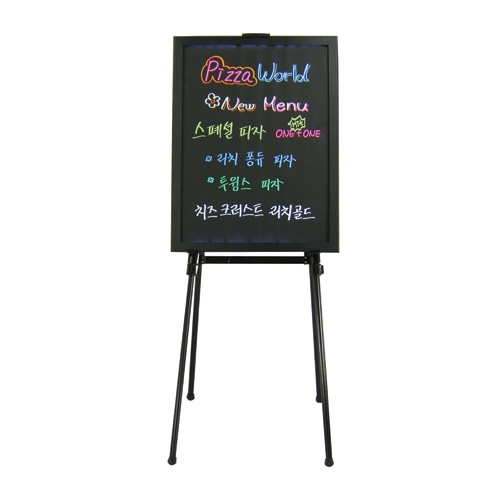 Pizza World
New Menu
스페셜 피자 ONE+ONE
리치 퐁듀 피자
투윔스 피자
치즈 크러스트 리치골드